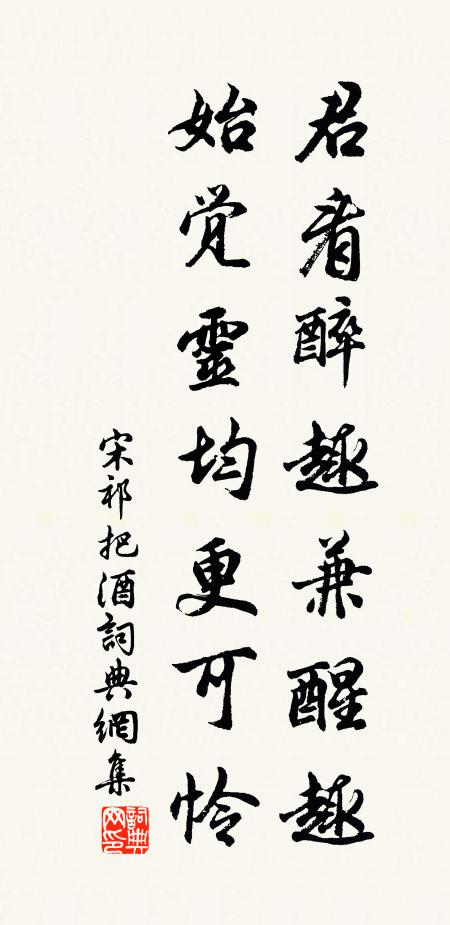 君看醉趣兼醒趣
始覚靈均更可怜
宋祁把酒詞典網集
詞典網印